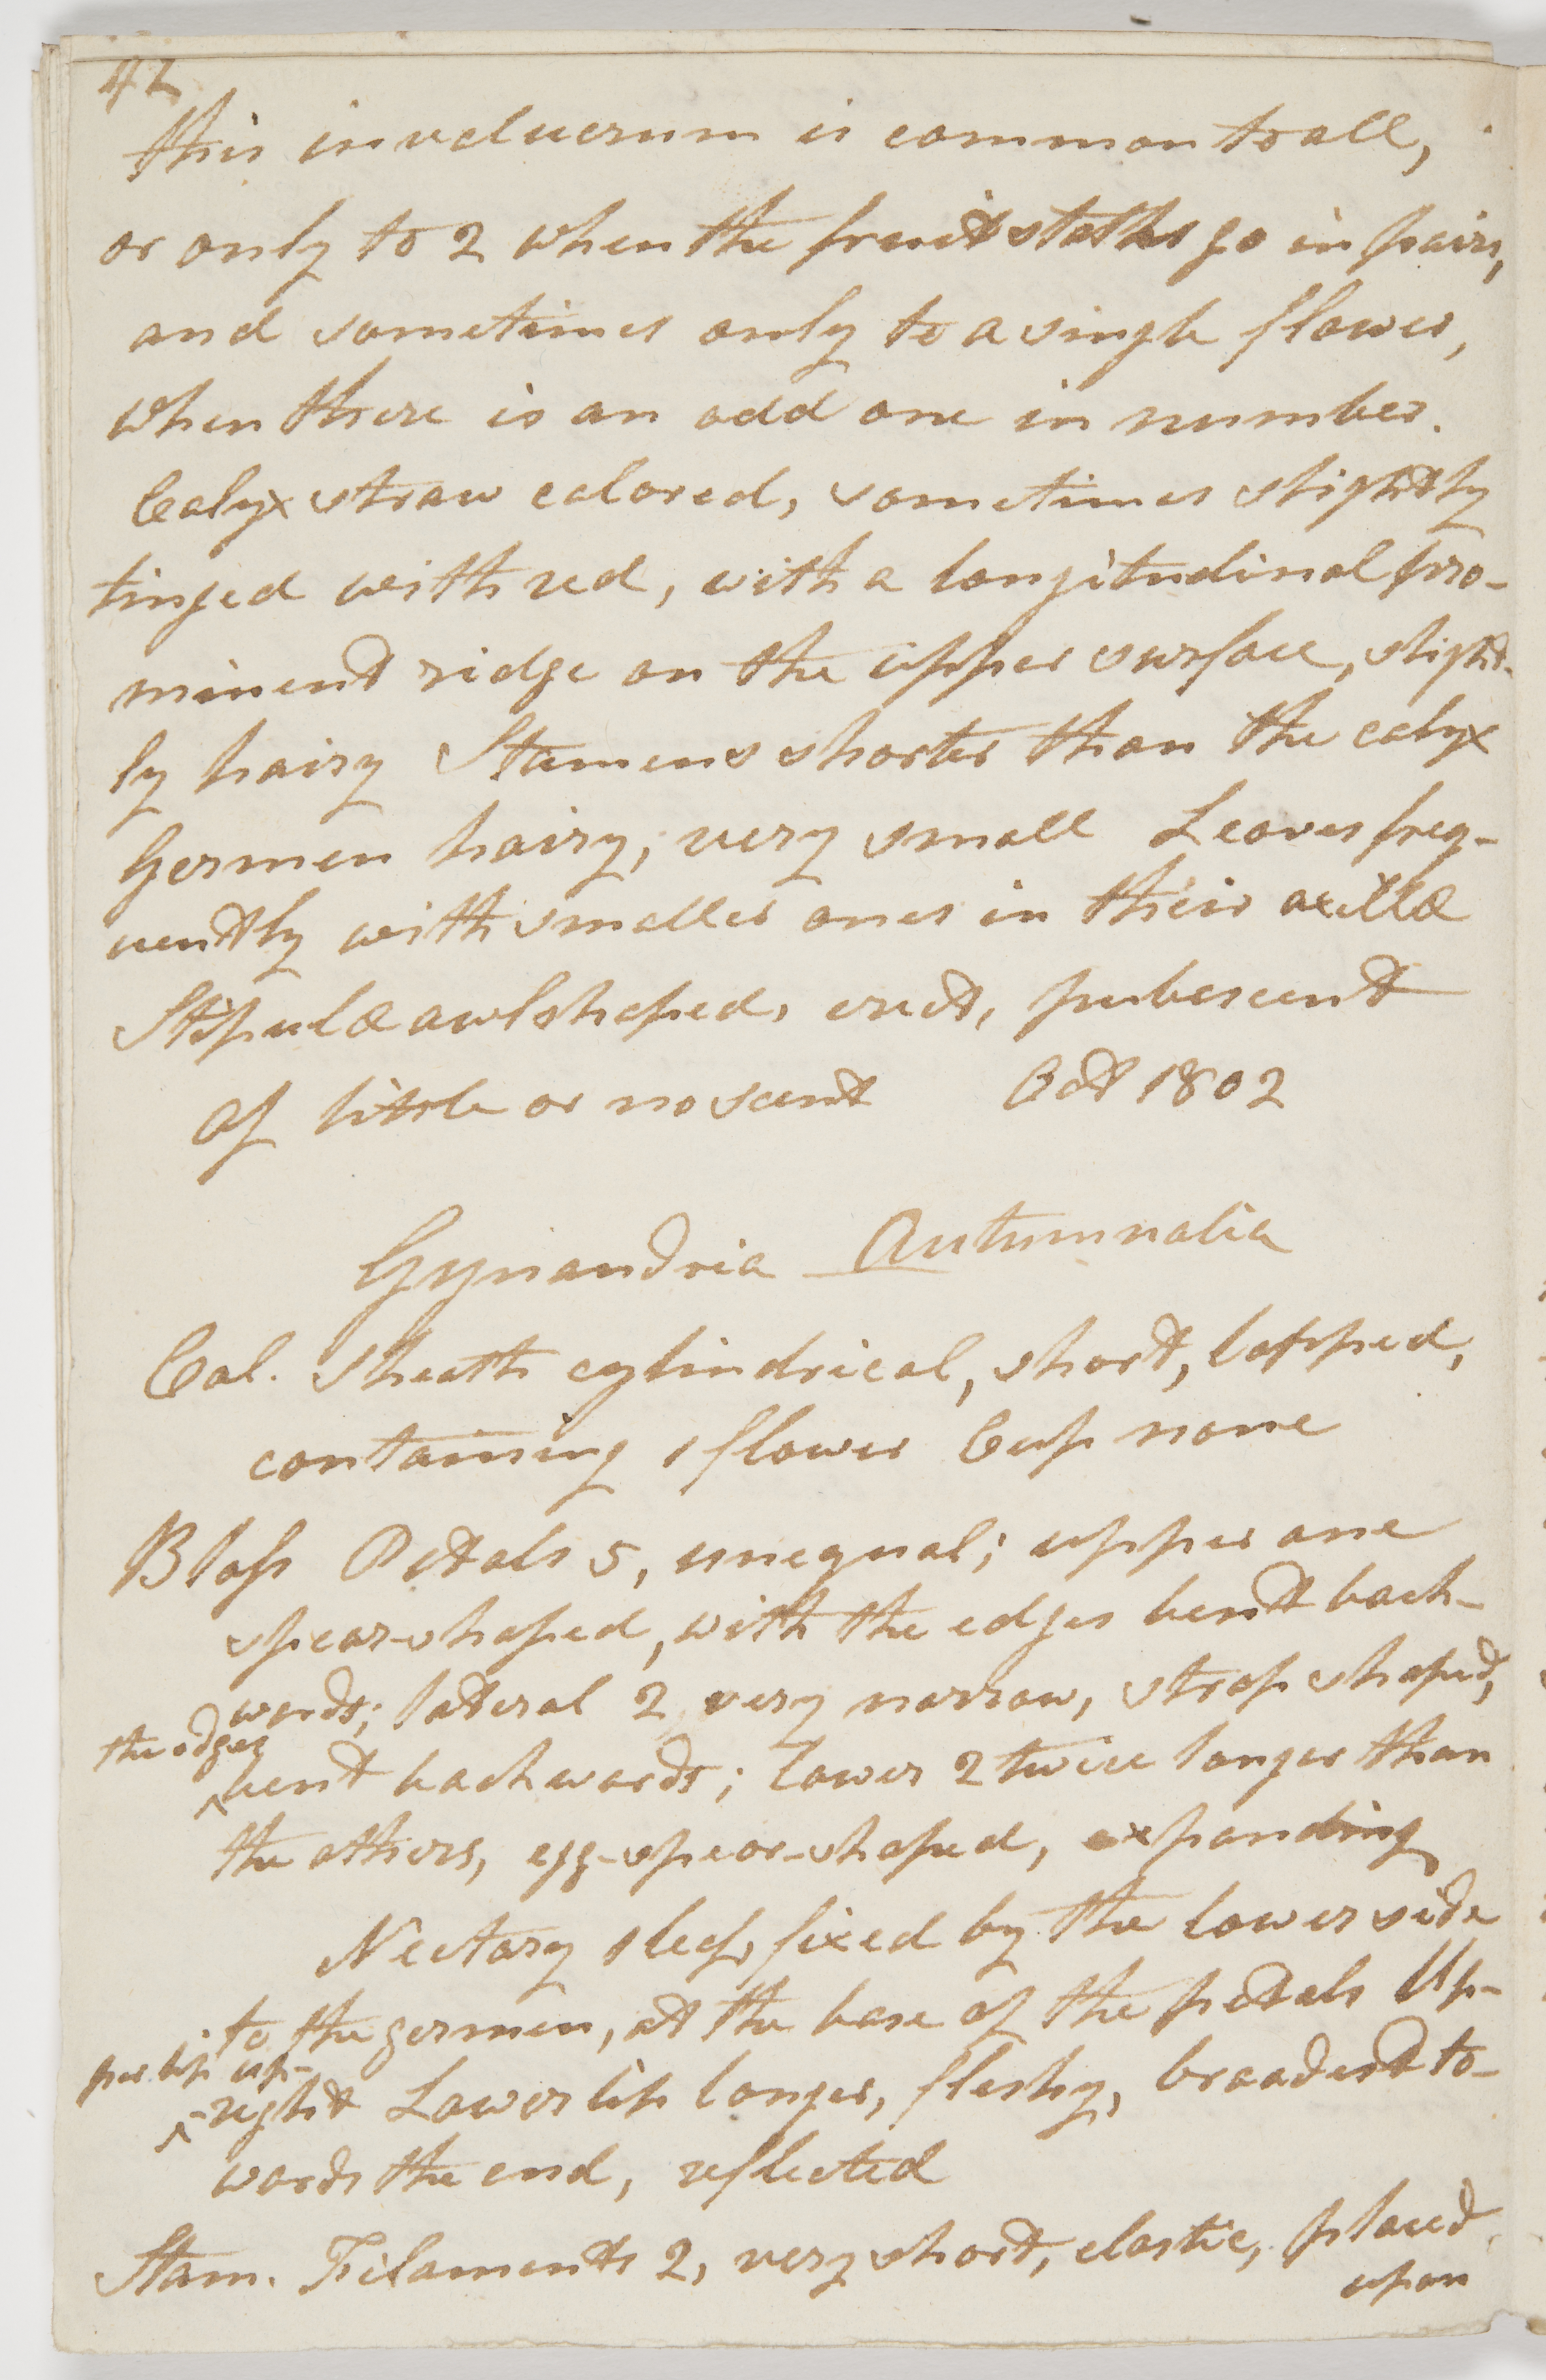 42
this involucrum is common to all,
or only to 2 when the fruitstalks go in pairs,
and sometimes only to a single flower,
when there is an odd one in number.
Calyx straw colored, sometimes slightly
tinged with red, with a longitudinal pro-
minent ridge on the upper surface, slight-
ly hairy Stamens shorter than the calyx
Germen hairy, very small Leaves freq-
uently with smaller ones in their axillæ
Stipulæ awlshaped, erect, pubescent
Of little or no scent Oct 1802
Gynandria Autumnalia
Cal. Sheath cylindrical, short, lopped,
containing 1 flower Cup none
Bloss Petals 5, unequal; upper one
spear-shaped, with the edges bent back-
wards; lateral 2 very narrow, strap shaped,
the edges
^bent backwards; lower 2 twice longer than
the others, egg-spear-shaped, expanding
Nectary 1 leaf, fixed by the lower side
to the germen, at the base of the petals Up-
per lip up-
^-right Lower lip longer, fleshy, broadest to-
wards the end, reflected
Stam. Filaments 2, very short, elastic, placed
upon